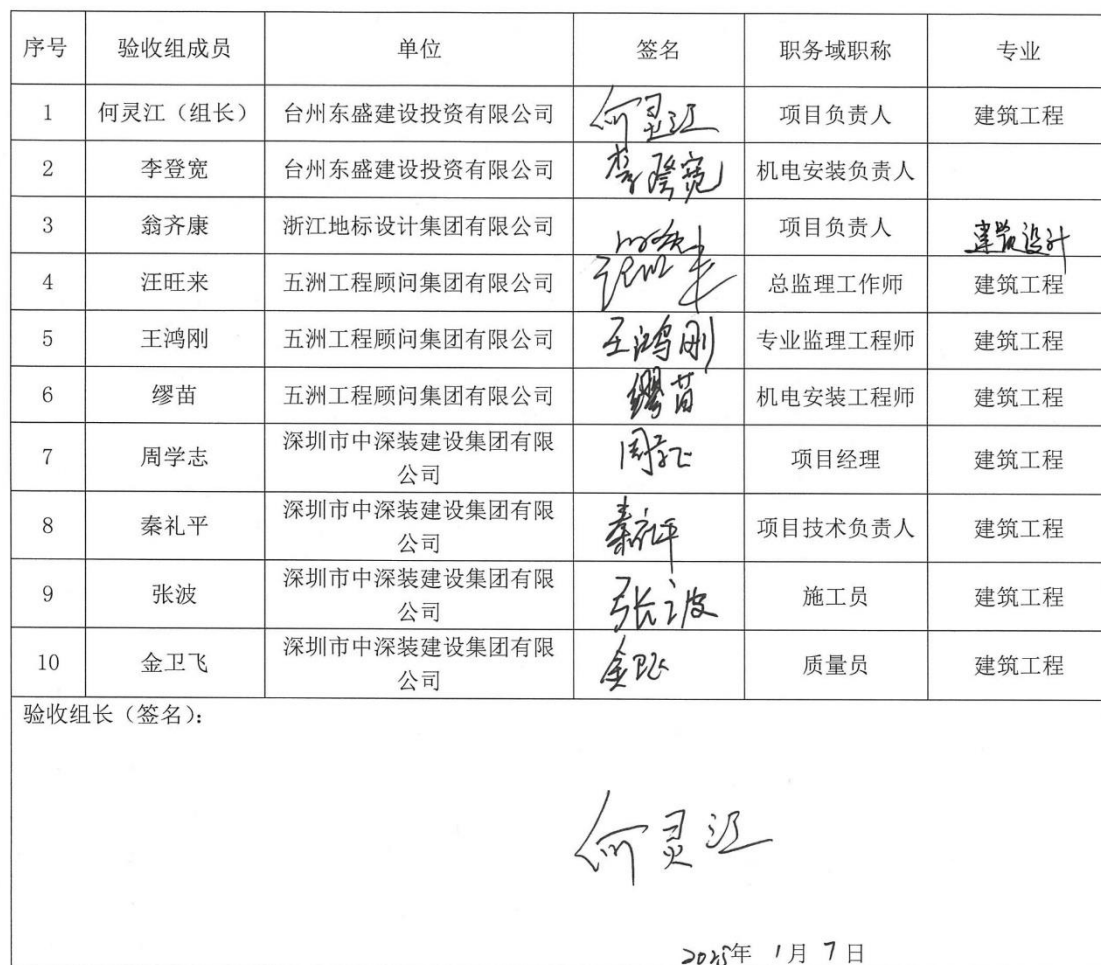 序号 验收组成员 单位 签名 职务域职称 专业
1 何灵江（组长） 台州东盛建设投资有限公司 何灵江 项目负责人 建筑工程
2 李登宽 台州东盛建设投资有限公司 李登宽 机电安装负责人
3 翁齐康 浙江地标设计集团有限公司 项目负责人 建筑设计
4 汪旺来 五洲工程顾问集团有限公司 总监理工作师 建筑工程
5 王鸿刚 五洲工程顾问集团有限公司 王鸿刚 专业监理工程师 建筑工程
6 缪苗 五洲工程顾问集团有限公司 缪苗 机电安装工程师 建筑工程
7 周学志 深圳市中深装建设集团有限
公司 周学志 项目经理 建筑工程
8 秦礼平 深圳市中深装建设集团有限
公司 秦礼平 项目技术负责人 建筑工程
9 张波 深圳市中深装建设集团有限
公司 张波 施工员 建筑工程
10 金卫飞 深圳市中深装建设集团有限
公司 金卫飞 质量员 建筑工程
验收组长（签名）：
何灵江
2025年 1月 7日